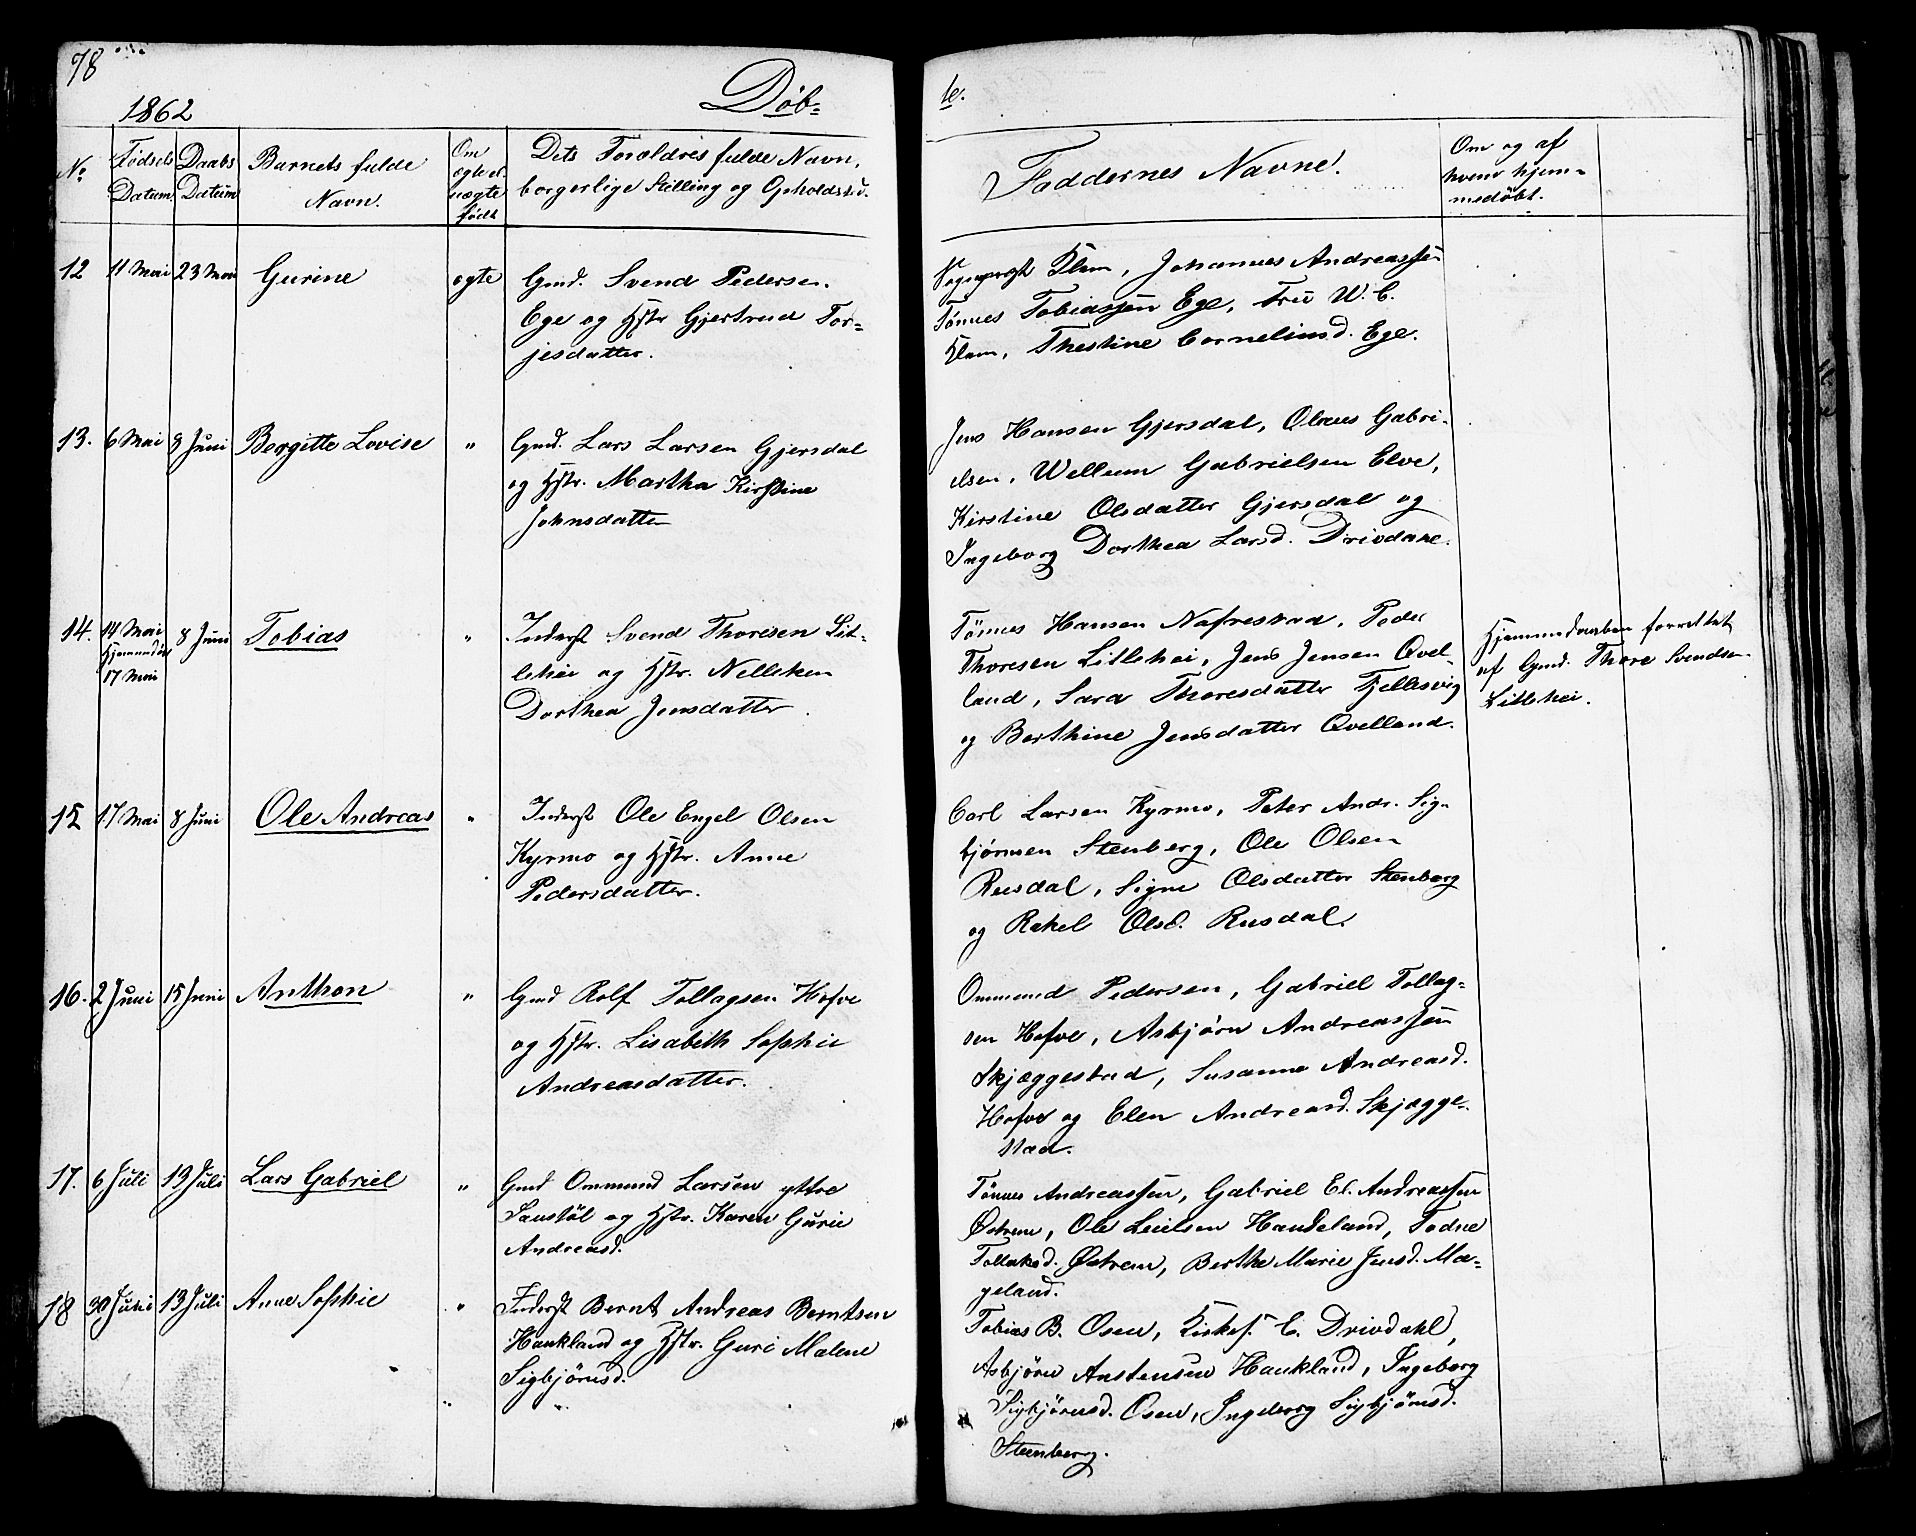 78
1862
Døb-
te.
No
Fødsels Datum
Daabs Datum
Barnets fulde
Navn.
Om
ægte el.
uægte
født
Dets Forældres fulde Navn,
borgerlige Stilling og Opholdssted.
Faddernes Navne.
Om og af
hvem hjem-
medøbt.
12 11 Mai 23 Mai Gurine ægte Gmd. Svend Pedersen
Ege og Hstr Gjertrud Tor-
jesdatter.
Klem, Johannes Andreassen
Tønnes Tobiassen Ege, Fru W. C.
Klem, Thestine Corneliusd. Ege.
13. 6 Mai 8 Juni Bergitte Lovise " Gmd. Lars Larsen Gjersdal
og Hstr. Martha Kirstine
Johnsdatter
Jens Hansen Gjersdal, Olaus Gabri-
elsen, Wellum Gabrielsen Elve,
Kirstine Olsdatter Gjersdal og
Ingeborg Dorthea Larsd. Drivdane.
14. 14 Mai 8 Juni Tobias " Inderst Svend Thoresen Lit-
Hjemmedøbt
17 Mai
lehei og Hstr. Nelleken
Dorthea Jensdatter.
Tønnes Hansen Nafrestad, Peder
Thoresen Littehei, Jens Jensen Qvel-
land, Sara Thoresdatter Fjellesvig
og Berthine Jensdatter Qvelland.
Hjemmedaaben forrettet
af Gmd. Thore Svendsen
Littehei.
15 17 Mai 8 Juni Ole Andreas " Inderst Ole Engel Olsen
Kyrmo og Hstr. Anne
Pedersdatter.
Carl Larsen Kyrmo, Peter Andr. Sig-
bjørnsen Stenberg, Ole Olsen
Rusdal, Signe Olsdatter Stenberg
og Rakel Olsd. Rusdal.
16. 2 Juni 15 Juni Anthon " Gmd Rolf Tollagsen Hofve
og Hstr. Lisabeth Sophie
Andreasdatter.
Ommund Pedersen, Gabriel Tollag-
sen Hofve, Asbjørn Andreassen
Skjæggestad, Susanne Andreasd.
Hofve og Elen Andreasd. Skjægge-
stad.
17. 6 Juli 13 Juli Lars Gabriel " Gmd Ommund Larsen yttre
Saustöl og Hstr. Karen Gurie
Andreasd.
Tønnes Andreassen, Gabriel El. Andreassen
Østrem, Ole Leielsen Haudeland, Todne
Tollaksd. Østrem, Berthe Marie Jensd. Mæ-
geland.
18 30 Juni 13 Juli Anne Sophie " Inderst Bernt Andreas Berntsen
Haukland og Hstr. Guri Malene
Sigbjørnsd.
Tobias B. Osen, Kirkes. C. Drivdahl,
Asbjørn Anstensen Haukland, Ingeborg
Sigbjørnsd. Osen, Ingeborg Sigbjørnsd.
Steenberg.